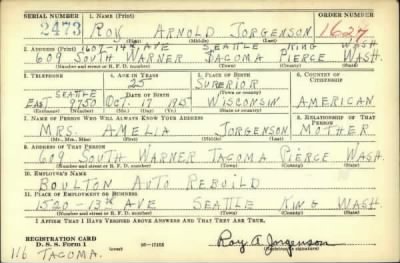 SERIAL NUMBER 1. NAME (Print) ORDER NUMBER
2473 ROY ARNOLD JORGENSON 1627
(First) (Middle) (Last)
2. ADDRESS (Print) 1607-14th AVE SEATTLE KING WASH.
609 SOUTH WARNER TACOMA PIERCE WASH.
(Number and street or R. F. D. number) (Town) (County) (State)
3. TELEPHONE 4. AGE IN YEARS 5. PLACE OF BIRTH 6. COUNTRY OF CITIZENSHIP
SEATTLE 25 SUPERIOR
(Town or county)
EAST 9750 OCT. 17 1915 WISCONSIN AMERICAN
(Exchange) (Number) (Mo.) (Day) (Yr.) (State or country)
7. NAME OF PERSON WHO WILL ALWAYS KNOW YOUR ADDRESS 8. RELATIONSHIP OF THAT PERSON
MRS. AMELIA JORGENSON MOTHER
(Mr., Mrs., Miss) (First) (Middle) (Last)
9. ADDRESS OF THAT PERSON
609 SOUTH WARNER TACOMA PIERCE WASH.
(Number and street or R. F. D. number) (Town) (County) (State)
10. EMPLOYER'S NAME
BOULTON AUTO REBUILD
11. PLACE OF EMPLOYMENT OR BUSINESS
1520-13th AVE SEATTLE KING WASH.
(Number and street or R. F. D. number) (Town) (County) (State)
I AFFIRM THAT I HAVE VERIFIED ABOVE ANSWERS AND THAT THEY ARE TRUE.
REGISTRATION CARD
D. S. S. Form 1 Roy A. Jorgenson
116 TACOMA.